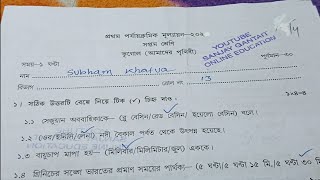 প্রথম পর্যায়ক্রমিক মূল্যায়ন-২০২
সপ্তম শ্রেণি
ভূগোল (আমাদের পৃথিবী)
YOUTUBE
SANJAY QANTAIT
ONLINE EDUCATION
সময়-১ ঘন্টা
পূর্ণমান-৩০
নাম Subham Khatua
বিভাগ
রোল নং 13
১। সঠিক উত্তরটি বেছে নিয়ে টিক (✓) চিহ্ন দাও।
১×৪=৪
১.১ (ব্লু বেসিন/রেড বেসিন/ইয়েলো বেসিন) বলে।
১.২ (ওব/ইনিসি/লেনা) নদী বৈকাল পর্বত থেকে উৎপন্ন হয়েছে।
১.৩ বায়ুচাপ মাপা হয়- (মিলিবার/মিলিমিটার/জুল) এককে।
১.৪ গ্রিনিচের সঙ্গে ভারতের প্রমাণ সময়ের পার্থক্য- (৫ ঘন্টা/৫ ঘন্টা ১৫ মি./৫ ঘন্টা ৩০ মি